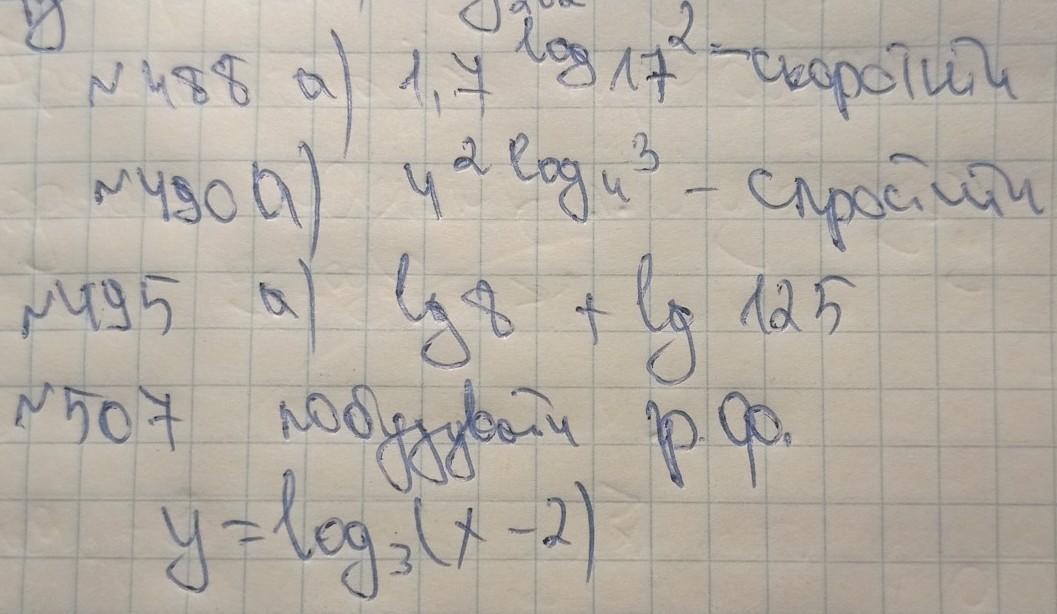 №488 а) 1,7^log 17^2 = - скоротити
№490 а) 4^2 log₄ 3 - спростити
№495 а) lg 8 + lg 125
№507 побудувати гр. ф.
y = log₃(x - 2)